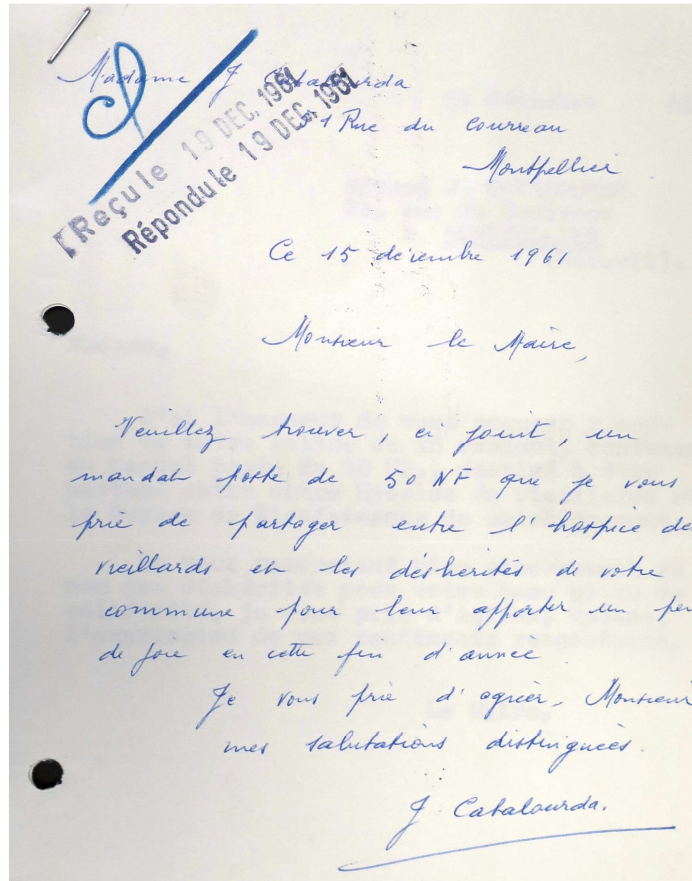 Madame J Catalourda
51 Rue du Courreau
Montpellier
Reçu le 19 DEC. 1961
Répondu le 19 DEC. 1961
Ce 15 décembre 1961
Monsieur le Maire,
Veuillez trouver, ci joint, un
mandat poste de 50 NF que je vous
prie de partager entre l'hospice de
vieillards et les déshérités de votre
commune pour leur apporter un peu
de joie en cette fin d'année
Je vous prie d'agréer, Monsieur
mes salutations distinguées.
J. Catalourda.